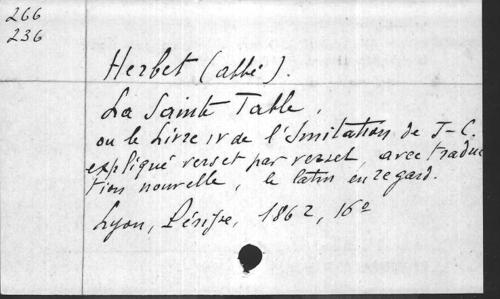 266
236
Herbet (abbé).
La Sainte Table,
ou le Livre IV de l'Imitation de J-C.
expliqué verset par verset, avec traduc
tion nouvelle, le latin en regard.
Lyon, Périsse, 1862, 16º